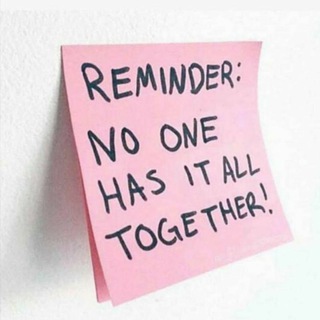 REMINDER:
NO ONE
HAS IT ALL
TOGETHER!